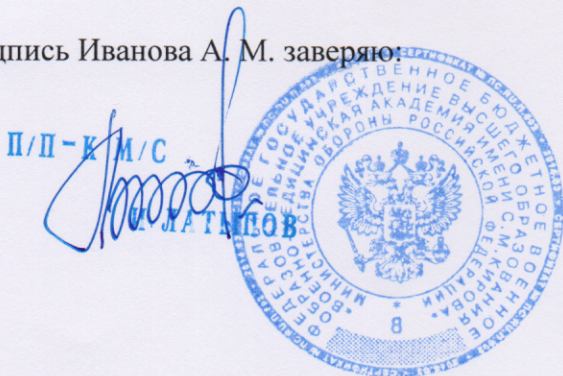 дпись Иванова А. М. заверяю:
П/П-К М/С
ЛАТЫПОВ
ФЕДЕРАЛЬНОЕ ГОСУДАРСТВЕННОЕ БЮДЖЕТНОЕ ВОЕННОЕ
ОБРАЗОВАТЕЛЬНОЕ УЧРЕЖДЕНИЕ ВЫСШЕГО ОБРАЗОВАНИЯ
"ВОЕННО-МЕДИЦИНСКАЯ АКАДЕМИЯ ИМЕНИ С.М.КИРОВА"
МИНИСТЕРСТВА ОБОРОНЫ РОССИЙСКОЙ ФЕДЕРАЦИИ
*
8